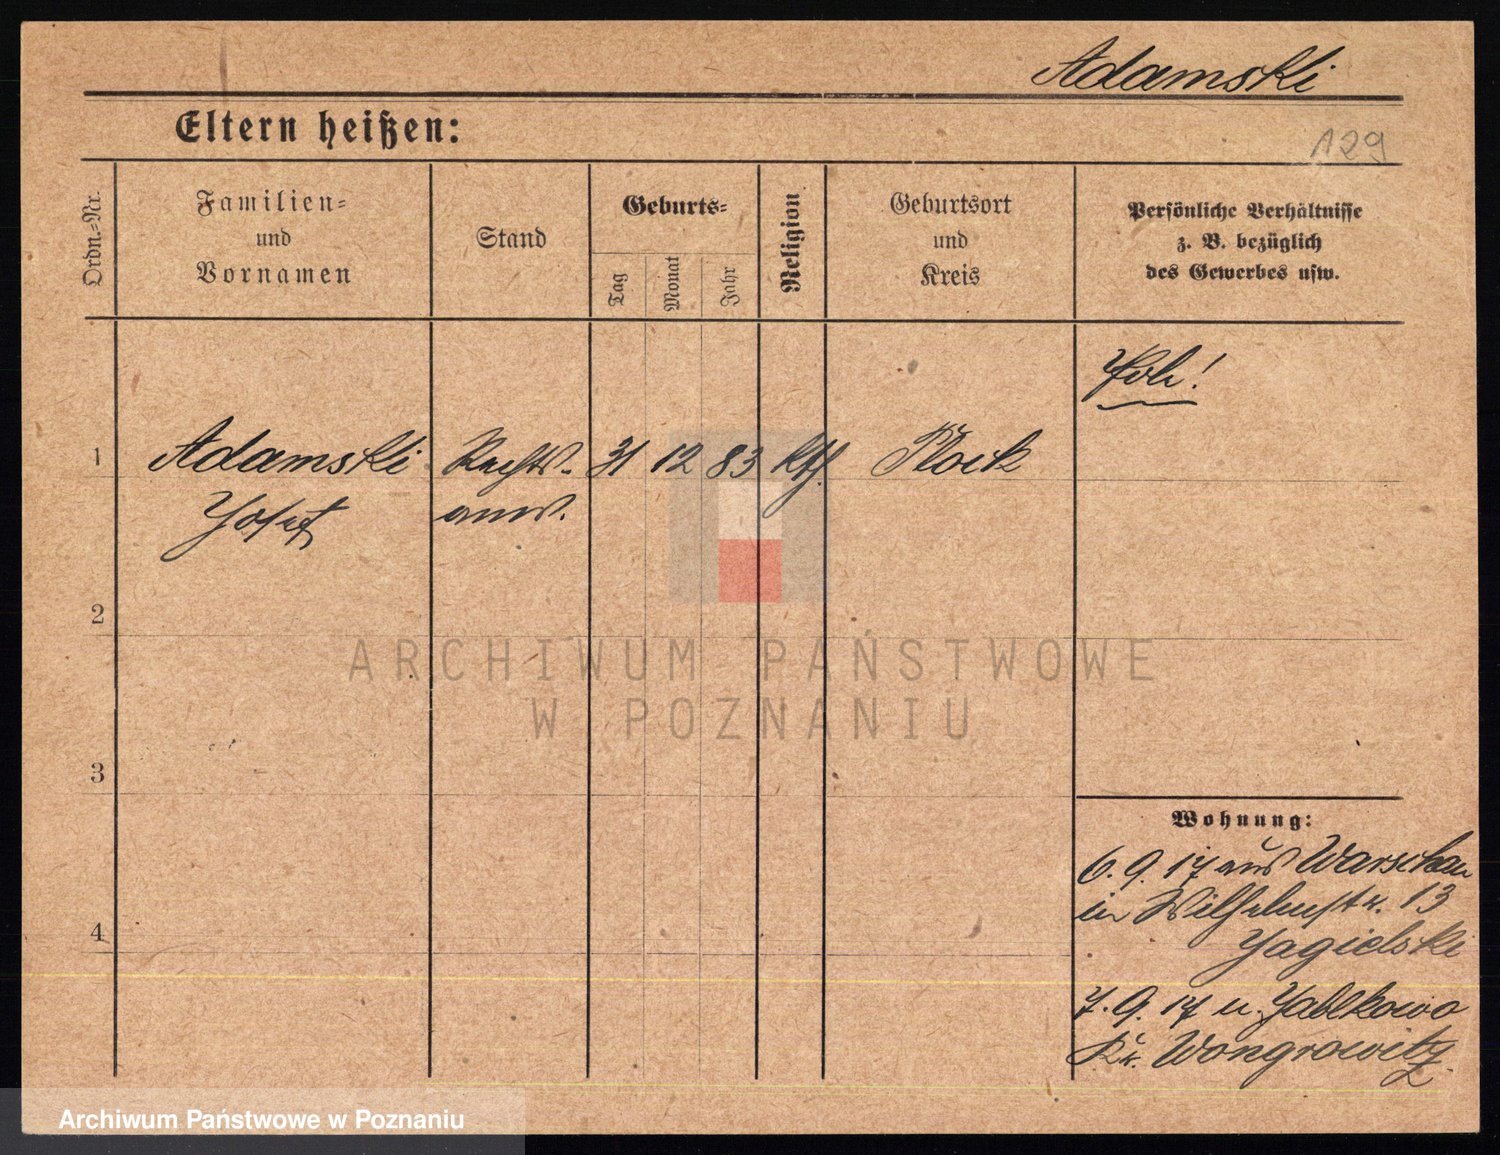 Adamski
Eltern heißen:
129
Ordn.-Nr.
Familien-
und
Vornamen
Stand
Geburts-
Tag
Monat
Jahr
Religion
Geburtsort
und
Kreis
Persönliche Verhältnisse
z. B. bezüglich
des Gewerbes usw.
Pole!
1 Adamski Rechts- 31 12 83 kth. Plock
Josef anw.
2
3
4
Wohnung:
6.9.17 aus Warschau
in Wilhelmstr. 13
Jagielski
7.9.17 n. Jablkowo
Kr. Wongrowitz
ARCHIWUM PAŃSTWOWE
W POZNANIU
Archiwum Państwowe w Poznaniu